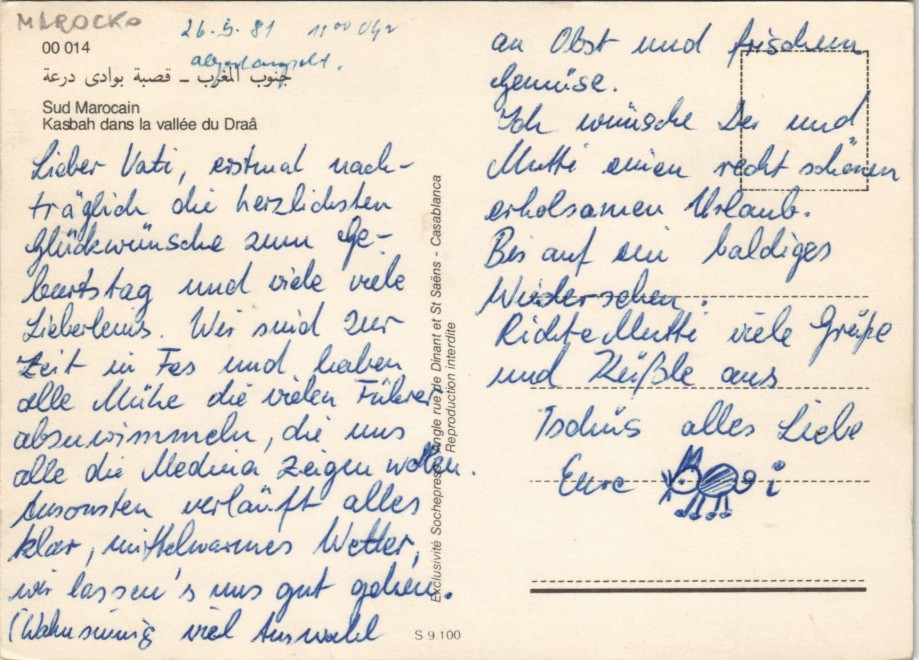 MAROCKO
26.5.81 11 00 Uhr
00 014
جنوب المغرب – قصبة بوادى درعة
Sud Marocain
Kasbah dans la vallée du Draâ
Lieber Vati, erstmal nach-
träglich die herzlichsten
Glückwünsche zum Ge-
burtstag und viele viele
Lieberleins. Wir sind zur
Zeit in Fes und haben
alle Mühe die vielen Führer
abzuwimmeln, die uns
alle die Medina zeigen wollen.
Ansonsten verläuft alles
klar, mittelwarmes Wetter,
wir lassen's uns gut gehen.
(Wahnsinnig viel Auswahl
an Obst und frischem
Gemüse.
Ich wünsche Dir und
Mutti einen recht schönen
erholsamen Urlaub.
Bis auf ein baldiges
Wiedersehen.
Richte Mutti viele Grüße
und Küßle aus
Tschüs alles Liebe
Eure i
Exclusivité Sochepress, Angle rue de Dinant et St Saëns - Casablanca
Reproduction interdite
S 9.100